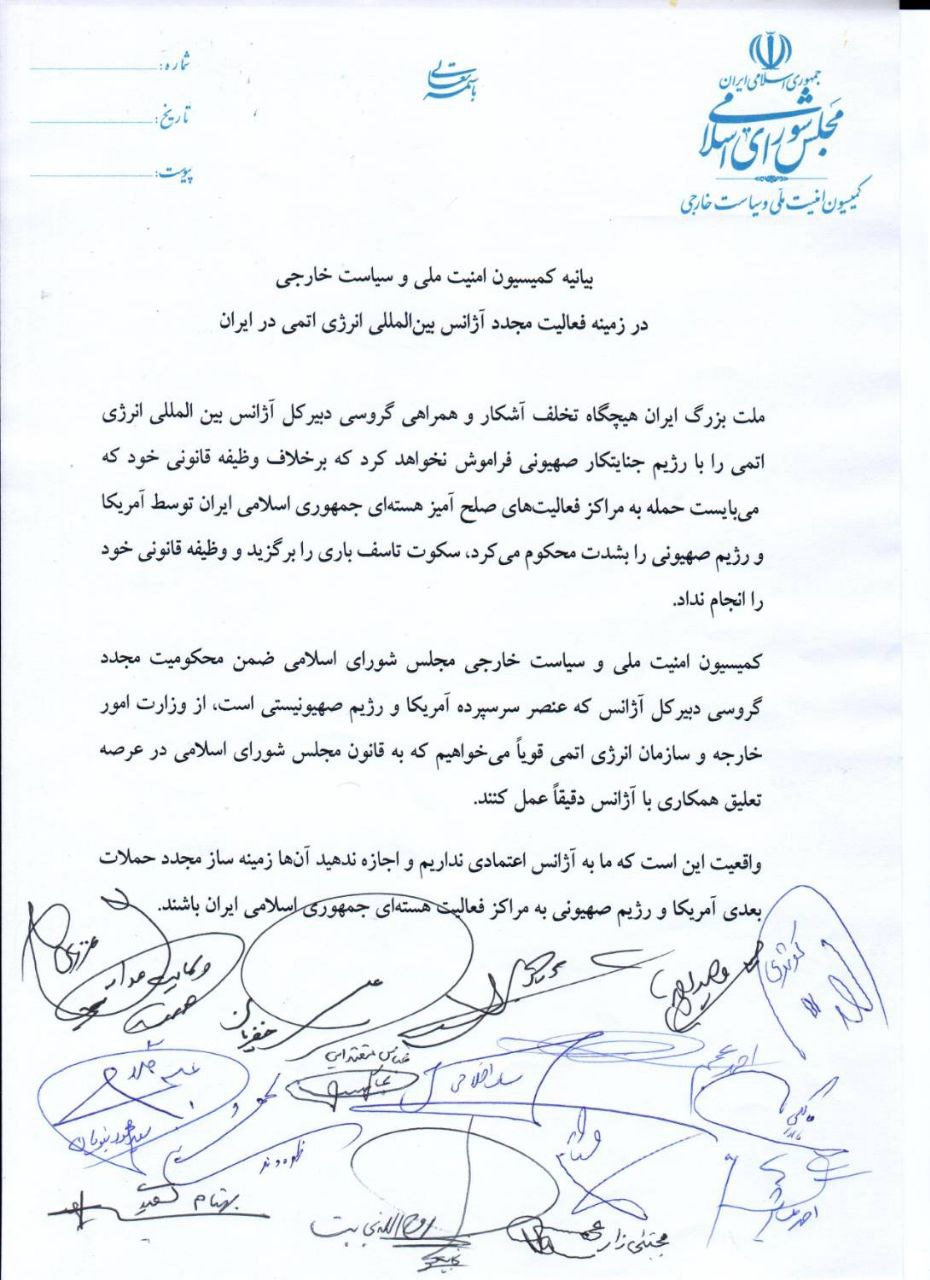 جمهوری اسلامی ایران
مجلس شورای اسلامی
کمیسیون امنیت ملی و سیاست خارجی
باسمه تعالی
شماره:
تاریخ:
پیوست:
بیانیه کمیسیون امنیت ملی و سیاست خارجی
در زمینه فعالیت مجدد آژانس بین‌المللی انرژی اتمی در ایران
ملت بزرگ ایران هیچگاه تخلف آشکار و همراهی گروسی دبیرکل آژانس بین المللی انرژی
اتمی را با رژیم جنایتکار صهیونی فراموش نخواهد کرد که برخلاف وظیفه قانونی خود که
می‌بایست حمله به مراکز فعالیت‌های صلح آمیز هسته‌ای جمهوری اسلامی ایران توسط آمریکا
و رژیم صهیونی را بشدت محکوم می‌کرد، سکوت تاسف باری را برگزید و وظیفه قانونی خود
را انجام نداد.
کمیسیون امنیت ملی و سیاست خارجی مجلس شورای اسلامی ضمن محکومیت مجدد
گروسی دبیرکل آژانس که عنصر سرسپرده آمریکا و رژیم صهیونیستی است، از وزارت امور
خارجه و سازمان انرژی اتمی قویاً می‌خواهیم که به قانون مجلس شورای اسلامی در عرصه
تعلیق همکاری با آژانس دقیقاً عمل کنند.
واقعیت این است که ما به آژانس اعتمادی نداریم و اجازه ندهید آن‌ها زمینه ساز مجدد حملات
بعدی آمریکا و رژیم صهیونی به مراکز فعالیت هسته‌ای جمهوری اسلامی ایران باشند.
کوثری
عزیزی
خضریان
عباس مقتدایی
احمد
علاء
بهنام سعیدی
روح الله
مجتبی زارعی